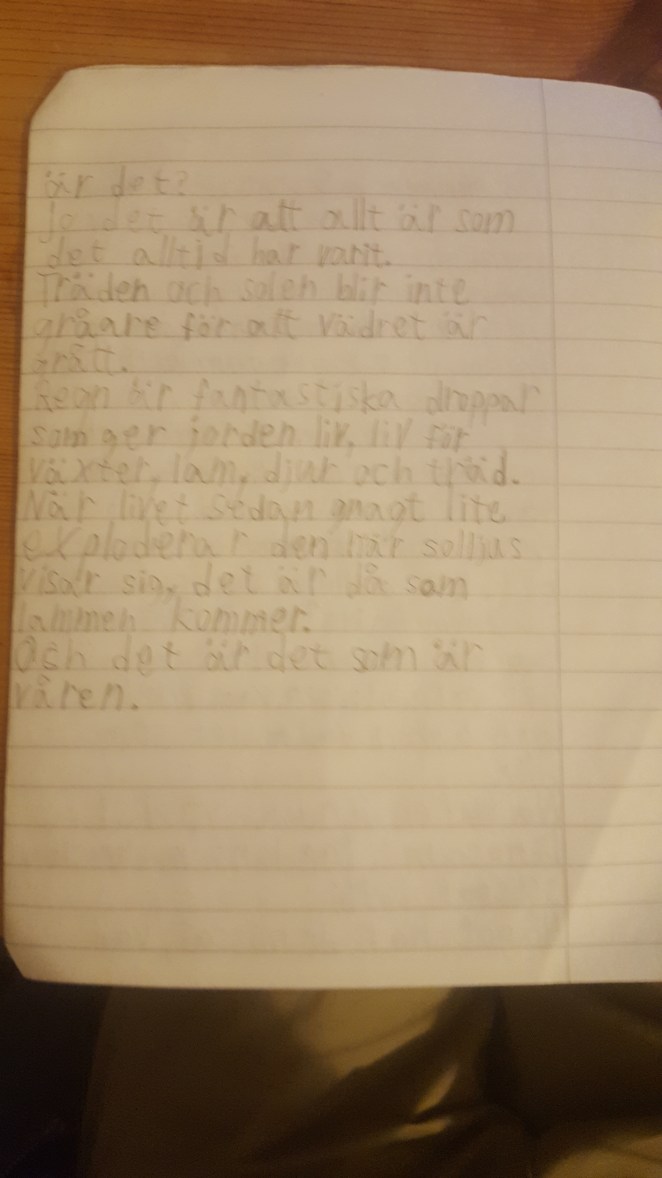 är det?
Jo det är att allt är som
det alltid har varit.
Träden och solen blir inte
gråare för att vädret är
grått.
Regn är fantastiska droppar
som ger jorden liv, liv för
växter, lam, djur och träd.
När livet sedan gnagt lite
exploderar den när solljus
visar sig, det är då som
lammen kommer.
Och det är det som är
våren.